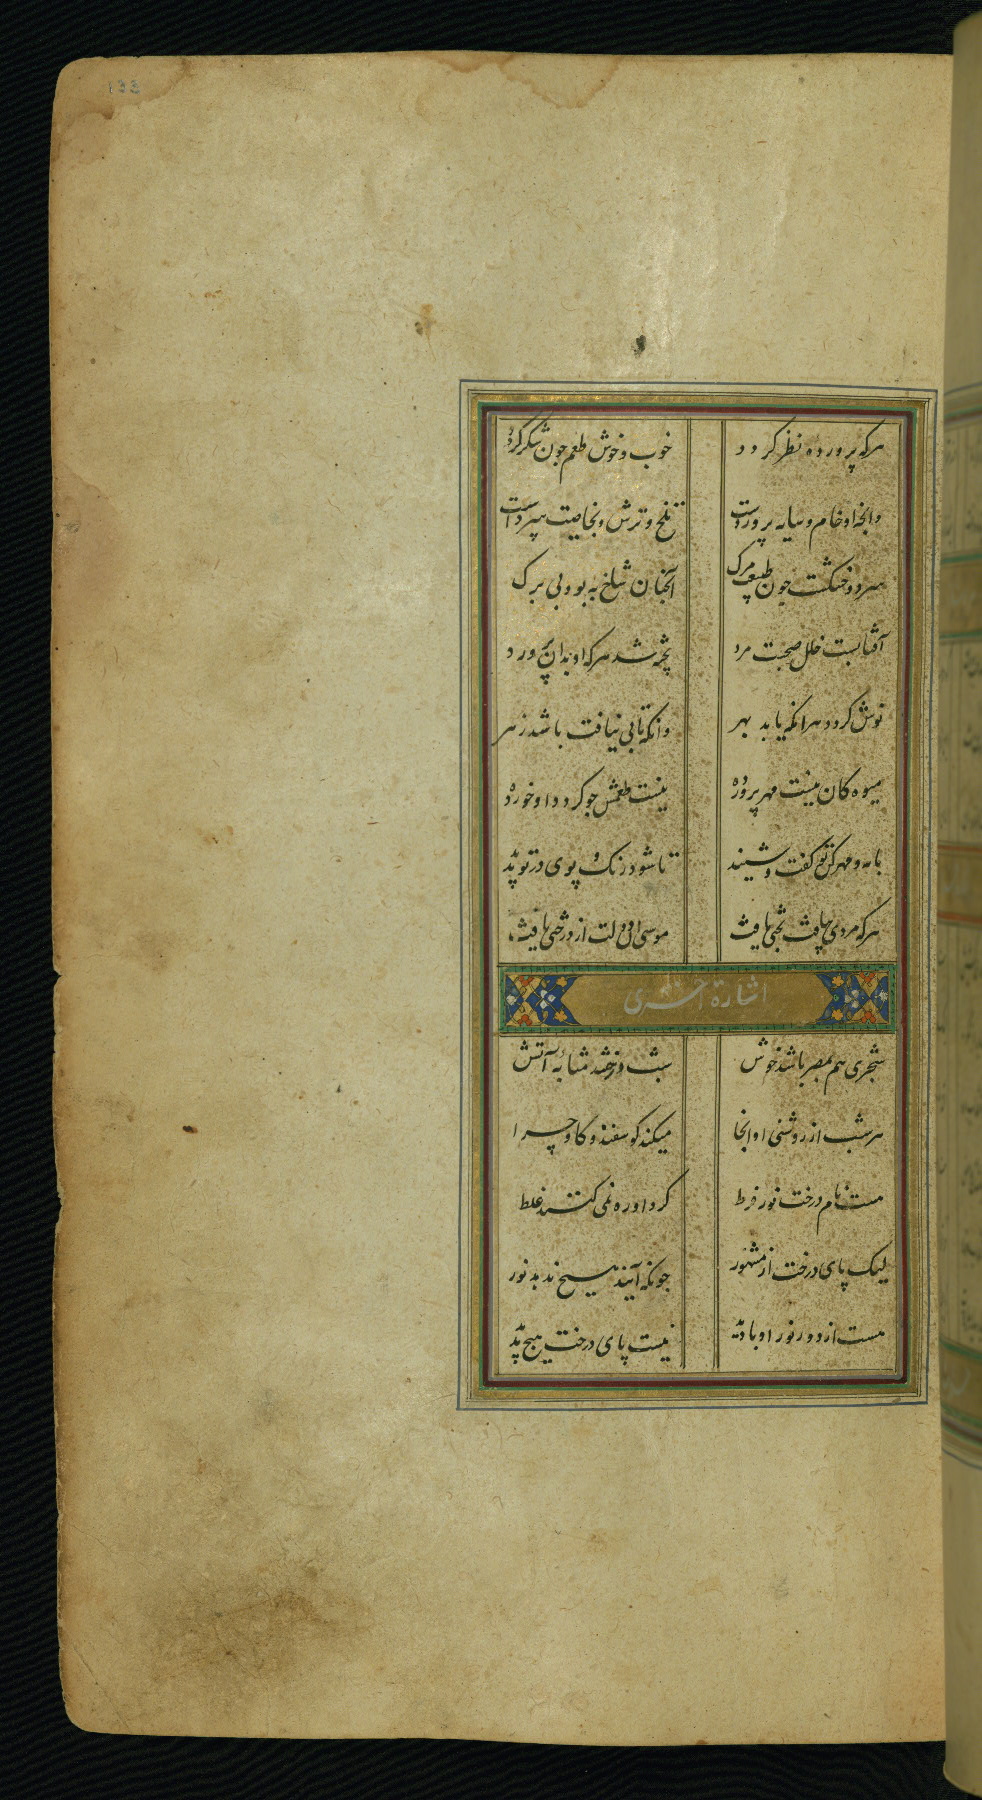 133
هرکه پرورده نظر کردد خوب و خوش طعم جون شکر کردد
وانجه او خام و سایه پروردست تلخ و ترش و بخاصیت سردست
سرد و خشکست جون طبیعت مرک آنجنان شاخ بی بر و بی برک
آفتابست ظل صحبت مرد پخته شد هرکه او بدان پرورد
نوش کردد هر انکه یابد بهر وانکه تابی نیافت باشد زهر
میوه کان نیست مهر پرورده نیست طعمش جو کردد او خورده
با مه و مهر کن تو کفت و شنید تا شود رنک و بوی در تو پدید
هرکه مردی بیافت بختی یافت موسی آن دولت از درختی یافت
اشارة اخری
شجری هم بمصر باشد خوش بشب درخشد مثابه آتش
هر شب از روشنی او انجا میکند کوسفند و کاو جرا
هست نام درخت نور فرط کرد او ره نمی کنند غلط
لیک پای درخت از مشهور جونکه آیند می نخ ندهد نور
هست از دور نور او با دید نیست پای درخت هیج پدید